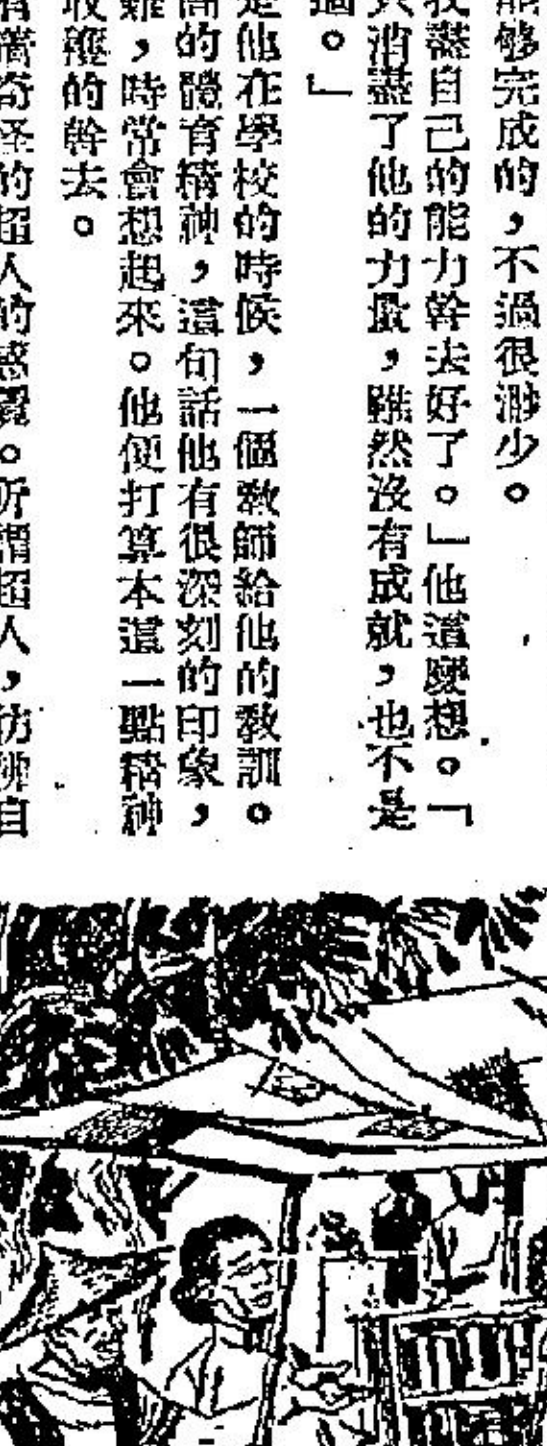 能够完成的，不過很渺少。
我盡自己的能力幹去好了。」他這麼想。「
只消盡了他的力量，雖然沒有成就，也不是
過。」
是他在學校的時候，一個教師給他的教訓。
高的體育精神，這句話他有很深刻的印象，
難，時常會想起來。他便打算本這一點精神
收穫的幹去。
有着奇怪的超人的感覺。所謂超人，彷彿自